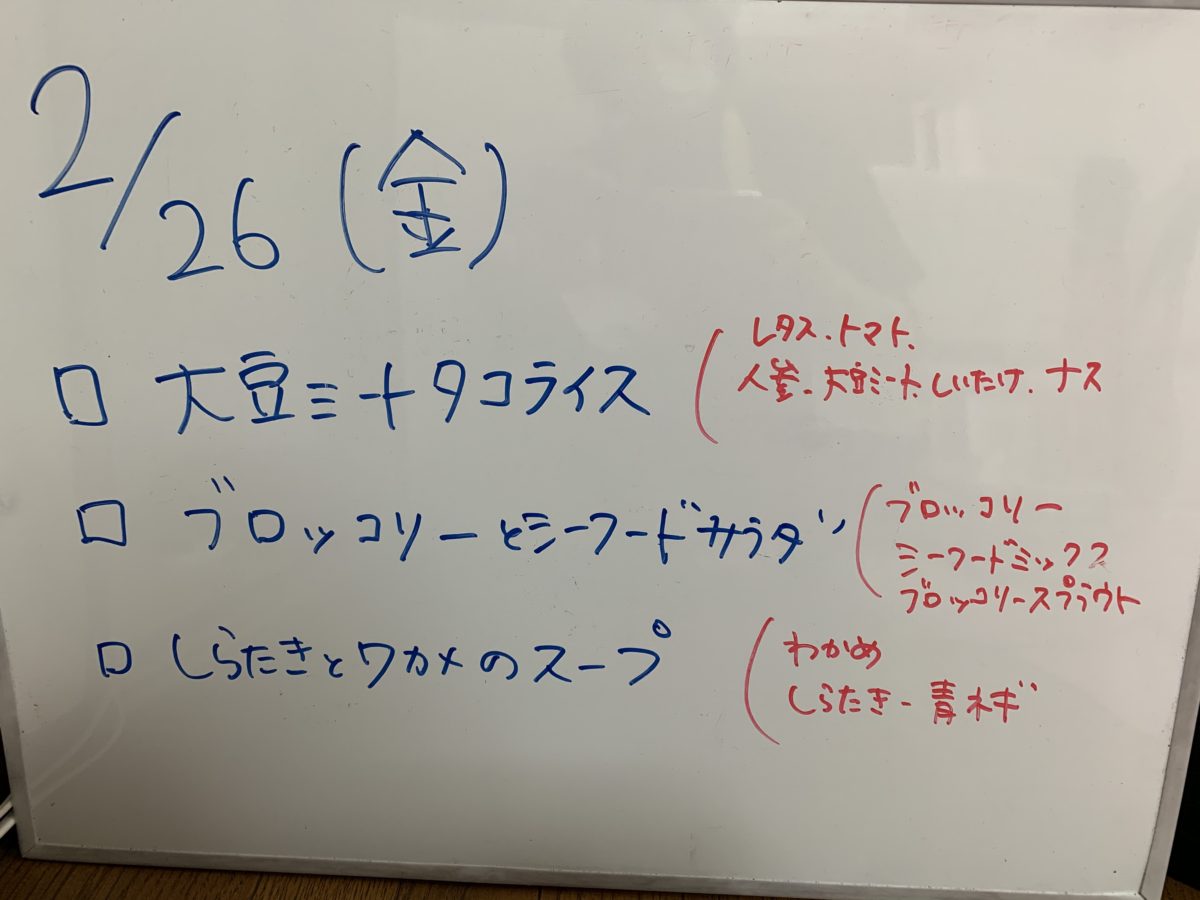 2/26(金)
□ 大豆ミートタコライス
レタス、トマト、
人参、大豆ミート、しいたけ、ナス
□ ブロッコリーとシーフードサラダ
ブロッコリー
シーフードミックス
ブロッコリースプラウト
□ しらたきとワカメのスープ
わかめ
しらたき、青ネギ